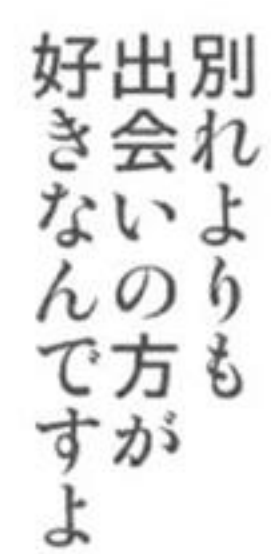 別れよりも
出会いの方が
好きなんですよ